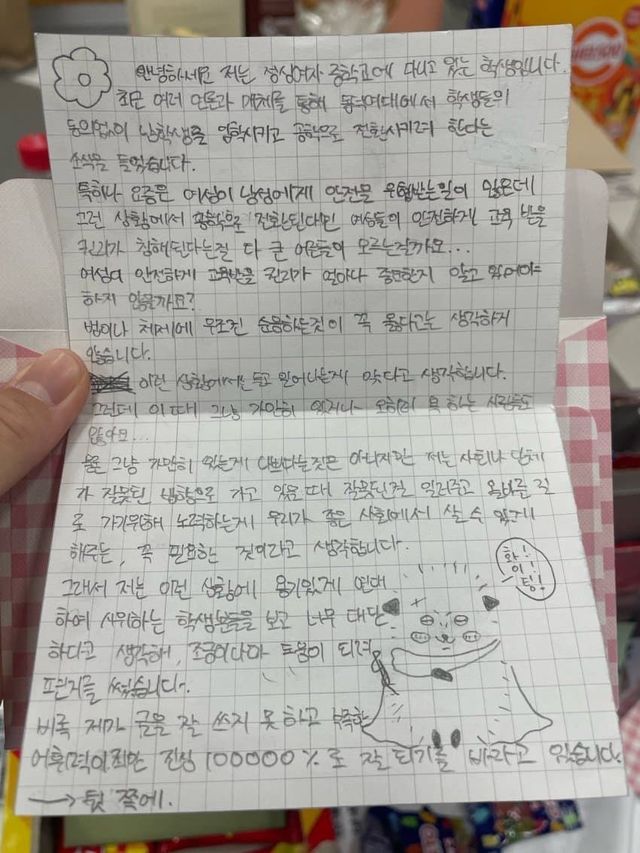 안녕하세요 저는 정성여자 중학교에 다니고 있는 학생입니다.
최근 여러 언론과 매체를 통해 동덕여대에서 학생들의
동의없이 남학생을 입학시키고 공학으로 전환시키려 한다는
소식을 들었습니다.
특히나 요즘은 여성이 남성에게 안전을 위협받는일이 많은데
그런 상황에서 공학으로 전환된다면 여성들이 안전하게 교육 받을
권리가 침해된다는걸 다 큰 어른들이 모르는걸까요...
여성이 안전하게 교육받을 권리가 얼마나 중요한지 알고 있어야
하지 않을까요?
법이나 체제에 무조건 순응하는것이 꼭 옳다고는 생각하지
않습니다.
이런 상황에서는 들고 일어나는게 맞다고 생각합니다.
그런데 이때 그냥 가만히 있거나 오히려 욕 하는 사람들도
많아요...
물론 그냥 가만히 있는게 나쁘다는것은 아니지만 저는 사회나 단체
가 잘못된 방향으로 가고 있을 때 잘못된걸 알려주고 올바른 길
로 가기위해 노력하는게 우리가 좋은 사회에서 살 수 있게
해주는, 꼭 필요한 것이라고 생각합니다.
그래서 저는 이런 상황에 용기있게 연대
하여 시위하는 학생분들을 보고 너무 대단
하다고 생각해, 조금이나마 도움이 되려
편지를 썼습니다.
비록 제가 글을 잘 쓰지 못하고 부족한
어휘력이지만 진심 100000%로 잘 되기를 바라고 있습니다.
→ 뒷 쪽에.
화!
이!
팅!